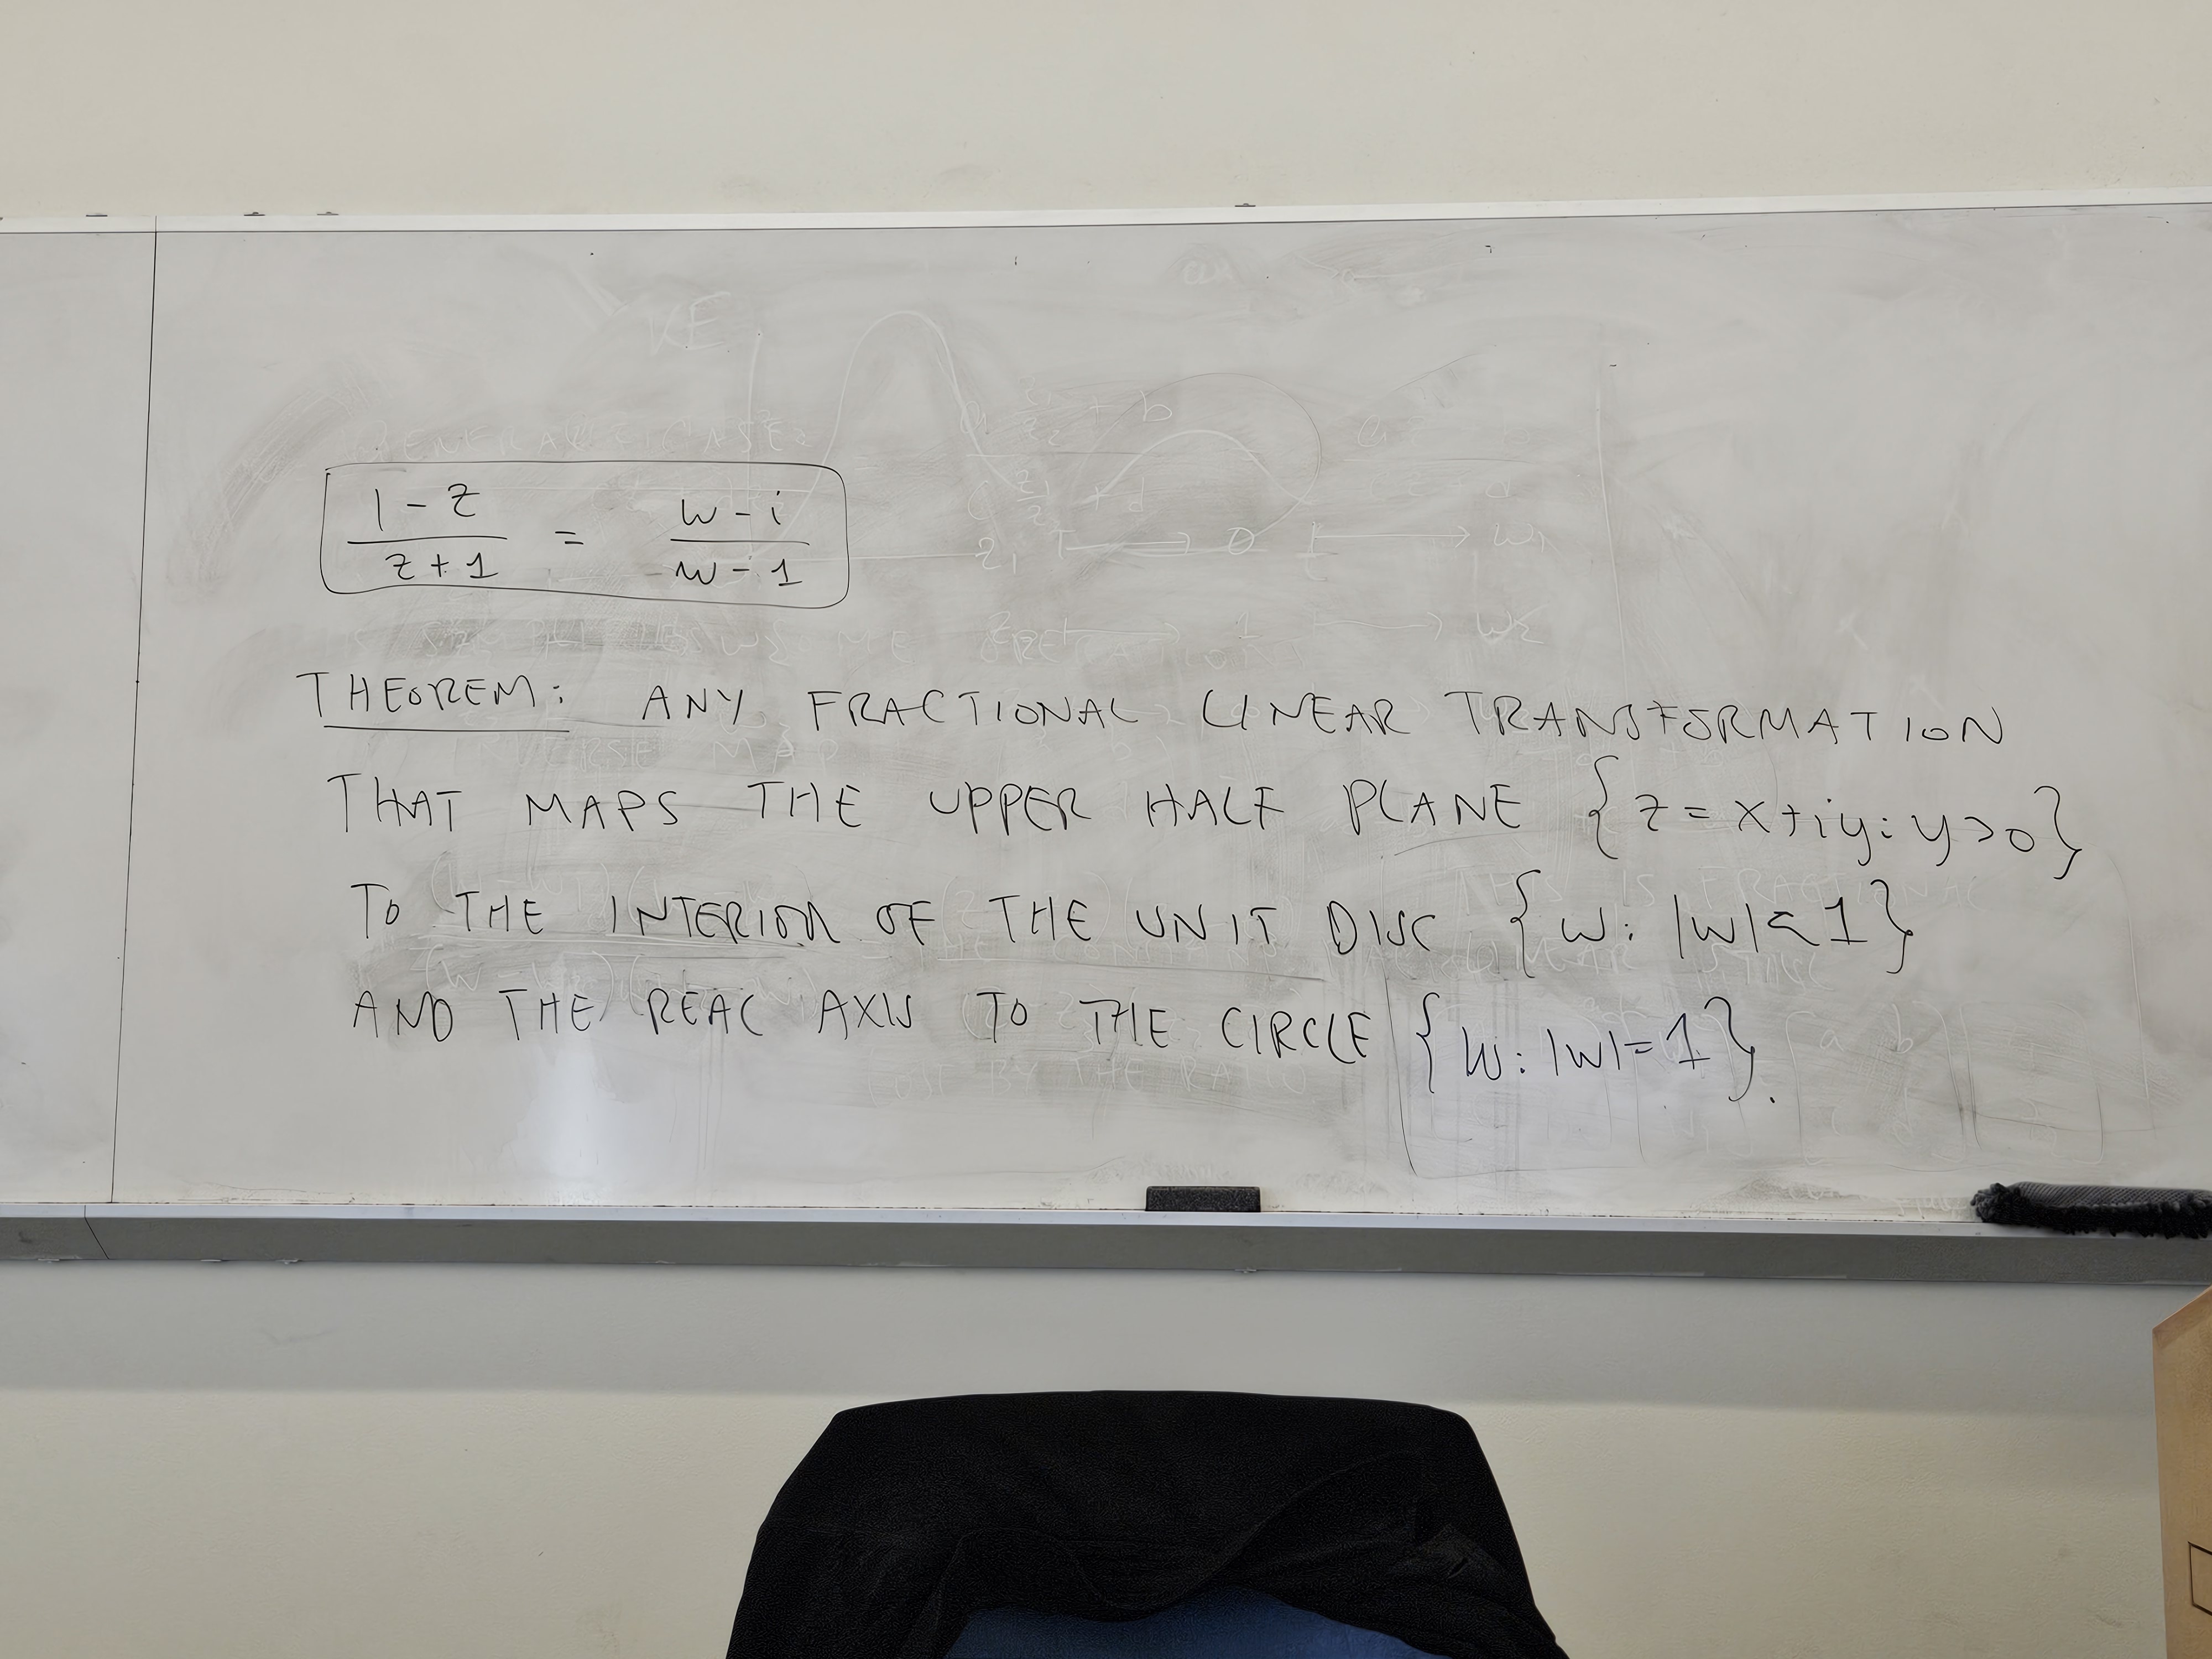 1 - z / z + 1 = w - i / w - 1
THEOREM: ANY FRACTIONAL LINEAR TRANSFORMATION
THAT MAPS THE UPPER HALF PLANE {z = x+iy: y>0}
TO THE INTERIOR OF THE UNIT DISC {w: |w|<1}
AND THE REAL AXIS TO THE CIRCLE {w: |w|=1}.